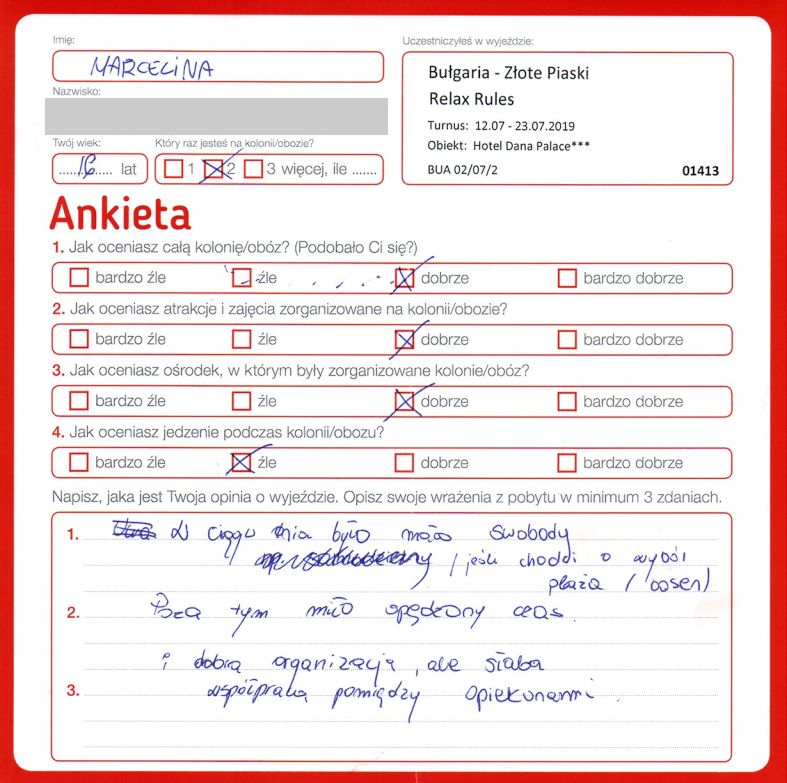 Imię:
MARCELINA
Nazwisko:
Twój wiek:
16 lat
Który raz jesteś na kolonii/obozie?
1 2 3 więcej, ile .......
Uczestniczyłeś w wyjeździe:
Bułgaria - Złote Piaski
Relax Rules
Turnus: 12.07 - 23.07.2019
Obiekt: Hotel Dana Palace***
BUA 02/07/2 01413
Ankieta
1. Jak oceniasz całą kolonię/obóz? (Podobało Ci się?)
bardzo źle źle dobrze bardzo dobrze
2. Jak oceniasz atrakcje i zajęcia zorganizowane na kolonii/obozie?
bardzo źle źle dobrze bardzo dobrze
3. Jak oceniasz ośrodek, w którym były zorganizowane kolonie/obóz?
bardzo źle źle dobrze bardzo dobrze
4. Jak oceniasz jedzenie podczas kolonii/obozu?
bardzo źle źle dobrze bardzo dobrze
Napisz, jaka jest Twoja opinia o wyjeździe. Opisz swoje wrażenia z pobytu w minimum 3 zdaniach.
1. W ciągu dnia było mało swobody
/ jeśli chodzi o wybór
plaża / basen)
2. Poza tym miło spędzony czas.
i dobra organizacja, ale słaba
3. współpraca pomiędzy opiekunami.